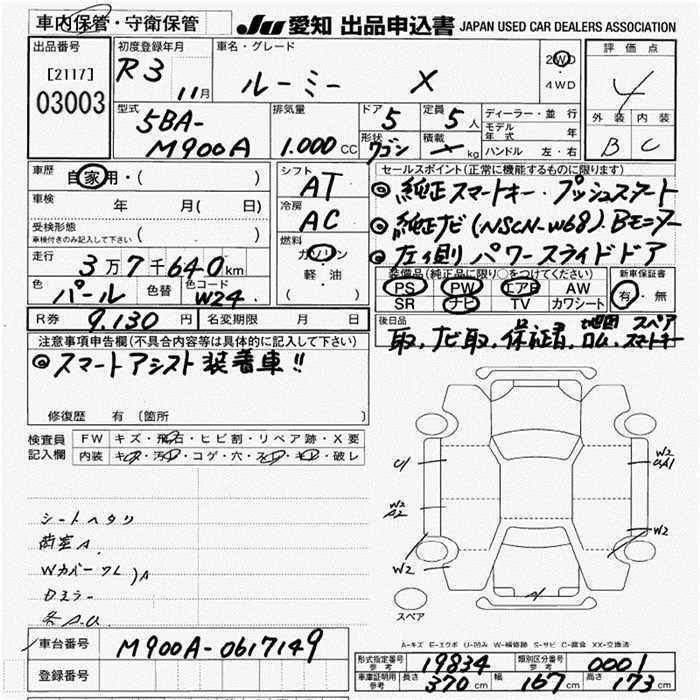 車内保管・守衛保管
JU 愛知 出品申込書 JAPAN USED CAR DEALERS ASSOCIATION
出品番号 [2117] 03003
初度登録年月 R3 11月
車名・グレード ルーミー X
2WD・4WD
評価点 4
外装 B 内装 C
型式 5BA-M900A
排気量 1.000 CC
ドア 5
定員 5人
形状 ワゴン
積載 kg
ディーラー・並行
モデル年式 年
ハンドル 左・右
車歴 自家用・( )
車検 年 月( 日)
受検形態 ( )
車検付きのみ記入して下さい
走行 3万7千640km
色 パール 色替 色コード W24
シフト AT
冷房 AC
燃料 ガソリン・軽・油 ( )
R券 9.130円 名変期限 月 日
セールスポイント(正常に機能するものに限ります)
◎純正スマートキー・プッシュスタート
◎純正ナビ(NSCN-W68).Bモニター
◎左側パワースライドドア
装備品(純正品に限り○をつけてください)
PS PW エアB AW
SR ナビ TV カワシート
新車保証書 有・無
後日品
取.ナビ取.保証書.地図ROM.スペアスマートキー
注意事項申告欄(不具合内容等は具体的に記入して下さい)
◎スマートアシスト装着車!!
修復歴 有 (箇所 )
検査員記入欄
FW キズ・飛石・ヒビ割・リペア跡・X要
内装 キズ・汚れ・コゲ・穴・スレ・キレ・破レ
シートヘタリ
荷室A.
Wカバー ワレ)A
U1
W2
A2
W2
W2
UA1
W2
A
スペア
A-キズ E-エクボ U-凹み W-補修跡 S-サビ C-腐食 XX-交換済
車台番号 M900A-0617149
登録番号
形式指定番号 参考 19834 類別区分番号 参考 0001
車庫証明用 参考 長さ 370cm 幅 167cm 高さ 173cm